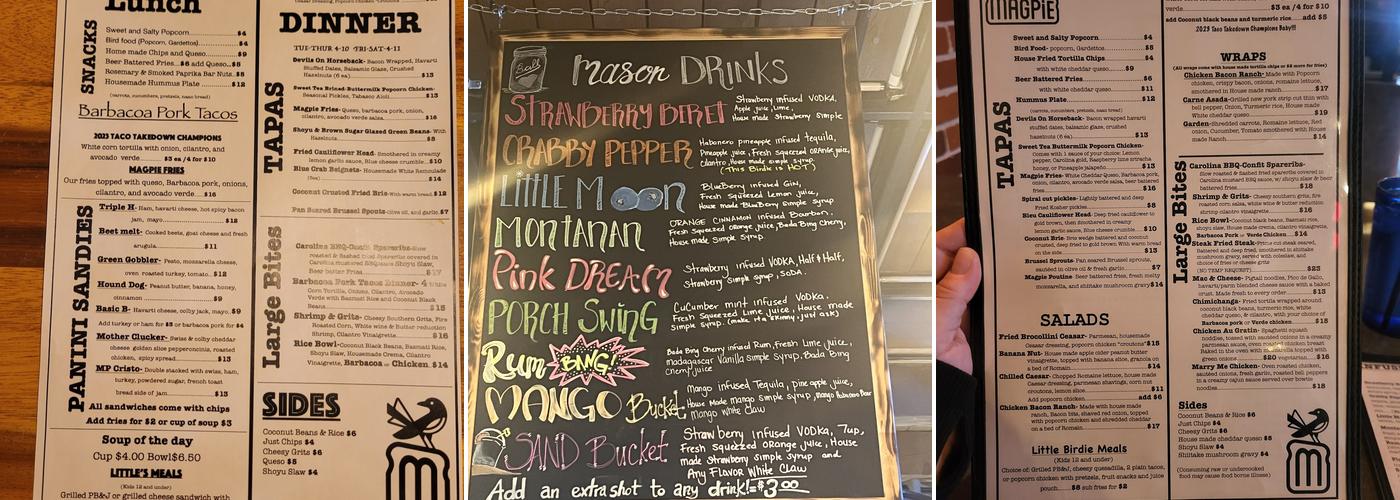 Lunch
SNACKS
Sweet and Salty Popcorn $4
Bird food (Popcorn, Gardettos) $4
Home made Chips and Queso $9
Beer Battered Fries...$6 add Queso...$5
Rosemary & Smoked Paprika Bar Nuts..$5
Househmade Hummus Plate $12
(carrots, cucumbers, pretzels, naan bread)
Barbacoa Pork Tacos
2023 TACO TAKEDOWN CHAMPIONS
White corn tortilla with onion, cilantro, and
avocado verde...$3 ea / 4 for $10
MAGPIE FRIES
Our fries topped with queso, Barbacoa pork, onions,
cilantro, and avocado verde...$16
PANINI SANDIES
Triple H- Ham, havarti cheese, hot spicy bacon
jam, mayo $12
Beet melt- Cooked beets, goat cheese and fresh
arugula $11
Green Gobbler- Pesto, mozzarella cheese,
oven roasted turkey, tomato...$12
Hound Dog- Peanut butter, banana, honey,
cinnamon $9
Basic B- Havarti cheese, colby jack, mayo..$9
Add turkey or ham for $3 or barbacoa pork for $4
Mother Clucker- Swiss & colby cheddar
cheese golden slice pepperoncinis, roasted
chicken, spicy spread $13
MP Cristo- Double stacked with swiss, ham,
turkey, powdered sugar, french toast
bread side of jam $13
All sandwiches come with chips
Add fries for $2 or cup of soup $3
Soup of the day
Cup $4.00 Bowl $6.50
LITTLE'S MEALS
(Kids 12 and under)
Grilled PB&J or grilled cheese sandwich with
DINNER
TUE-THUR 4-10 FRI-SAT-4-11
TAPAS
Devils On Horseback- Bacon Wrapped, Havarti
Stuffed Dates, Balsamic Glaze, Crushed
Hazelnuts (6 ea) $13
Sweet Tea Brined-Buttermilk Popcorn Chicken-
Seasonal Pickles, Tabasco Aioli $13
Magpie Fries- queso, barbacoa pork, onion,
cilantro, avocado verde salsa $16
Shoyu & Brown Sugar Glazed Green Beans- With
Hazelnuts $8
Fried Cauliflower Head- Smothered in creamy
lemon garlic sauce, Blue cheese crumble..$10
Blue Crab Beignets- Housemade White Remoulade
(5ea) $14
Coconut Crusted Fried Brie-With warm bread.$12
Pan Seared Brussel Sprouts-olive oil, and garlic.$7
Large Bites
Carolina BBQ-Confit Spareribs-Slow
roasted & flashed fried Spareribs covered in
Carolina mustard BBQ sauce Shoyu Slaw,
Beer batter Fries $17
Barbacoa Pork Tacos Dinner- 4 White
Corn Tortilla, Onions, Cilantro, Avocado
Verde with Basmati Rice and Coconut Black
Beans $15
Shrimp & Grits- Cheesy Southern Grits, Fire
Roasted Corn, White wine & Butter reduction
Shrimp, Cilantro Vinaigrette $16
Rice Bowl-Coconut Black Beans, Basmati Rice,
Shoyu Slaw, Housemade Crema, Cilantro
Vinaigrette, Barbacoa or Chicken.$14
SIDES
Coconut Beans & Rice $6
Just Chips $4
Cheesy Grits $6
Queso $5
Shoyu Slaw $4
Salt
mason DRINKS
STRAWBERRY BERET
Strawberry infused VODKA,
Apple juice, Lime,
House made Strawberry Simple
CRABBY PEPPER
Habanero pineapple infused tequila,
Pineapple juice, Fresh squeezed ORANGE juice,
cilantro, House made simple syrup.
(This Birdie is HOT)
LITTLE MOON
BlueBerry infused Gin,
Fresh Squeezed Lemon juice,
House made BlueBerry Simple syrup
MONTANAN
ORANGE CINNAMON infused Bourbon,
Fresh Squeezed Orange juice, Bada Bing Cherry.
House made Simple Syrup.
Pink DREAM
Strawberry infused VODKA, Half & Half,
Strawberry Simple syrup, SoDA.
PORCH SWING
CuCumber mint infused VODKA.
Fresh Squeezed Lime juice, House made
Simple syrup. (make it a skinny, just ask)
Rum BING!
Bada Bing Cherry infused Rum, Fresh Lime juice,
Madagascar Vanilla Simple Syrup, Bada Bing
Cherry juice
MANGO Bucket
Mango infused Tequila, pineapple juice,
House Made Mango Simple Syrup,
Mango White Claw
SAND Bucket
Strawberry infused VODKA, 7up,
Fresh Squeezed Orange juice, House
made Strawberry Simple syrup and
Any FLAVOR White CLAW
Add an extra shot to any drink!=$3.00
MAGPIE
TAPAS
Sweet and Salty Popcorn $4
Bird Food- popcorn, Gardettos $5
House Fried Tortilla Chips $4
with white cheddar queso $9
Beer Battered Fries $6
with white cheddar queso $11
Hummus Plate $12
(carrots, cucumbers, pretzels, naan bread)
Devils On Horseback- Bacon wrapped havarti
stuffed dates, balsamic glaze, crushed
hazelnuts (6 ea) $13
Sweet Tea Buttermilk Popcorn Chicken-
Comes with 1 sauce of your choice: Lemon
pepper, Carolina gold, Raspberry lime sriracha
honey, or Pineapple jalapeño $13
Magpie Fries- White Cheddar Queso, Barbacoa pork,
onion, cilantro, avocado verde salsa, beer battered
fries $16
Spiral cut pickles- Lightly battered and deep
Fried Kosher pickles $8
Bleu Cauliflower Head- Deep fried cauliflower to
golden brown, then smothered in creamy
lemon garlic sauce, Blue cheese crumble $10
Coconut Brie- Brie wedge battered and coconut
crusted, deep fried to golden brown. With warm bread
on the side $13
Brussel Sprouts- Brussel sprouts,
sautéed in olive oil & fresh garlic $7
Magpie Poutine- Beer battered fries, fresh melty
mozzarella, and shiitake mushroom gravy $14
SALADS
Fried Broccolini Caesar- Parmesan, housemade
Caesar dressing, popcorn chicken "croutons" $15
Banana Nut- House made apple cider peanut butter
vinaigrette, topped with banana slice, granola on
a bed of Romain $14
Chilled Caesar- Chopped Romaine lettuce, house made
Caesar dressing, parmesan shavings, corn nut
croutons, lemon slice $11
Add popcorn chicken add $6
Chicken Bacon Ranch- Made with house made
ranch, Bacon bits, shaved red onion, topped
with popcorn chicken and shredded cheddar
on a bed of Romain $17
Little Birdie Meals
(Kids 12 and under)
Choice of: Grilled PB&J, cheesy quesadilla, 2 plain tacos,
or popcorn chicken with pretzels, fruit snacks and juice
pouch $8 sub fries for $2
verde $3 ea / 4 for $10
add Coconut black beans and turmeric rice add $5
2023 Taco Takedown Champions Baby!!!
WRAPS
(All wraps come with house made tortilla chips or $2 more for fries)
Chicken Bacon Ranch- Made with Popcorn
chicken, crispy bacon, onions, romaine lettuce,
smothered in House made ranch $17
Carne Asada-Grilled new york strip cut thin with
bell pepper, Onion, Turmeric rice, House made
White cheddar queso $19
Garden-Shredded carrots, Romaine lettuce, Red
onion, Cucumber, Tomato smothered with House
made Ranch $14
Large Bites
Carolina BBQ-Confit Spareribs-
Slow roasted & flashed fried spareribs covered in
Carolina mustard BBQ sauce, w/ shoyu slaw & beer
battered fries $18
Shrimp & Grits- Cheesy southern grits, fire
roasted corn salsa, white wine & butter reduction
shrimp cilantro vinaigrette $16
Rice Bowl-Coconut black beans, Basmati rice,
shoyu slaw, House made crema, cilantro vinaigrette
Barbacoa Pork or Verde Chicken $14
Steak Fried Steak-Prime cut steak seared,
battered and deep fried, smothered in house
made mushroom gravy, served with coleslaw, and
choice of fries or cheese grits
(NO TEMP REQUEST) $23
Mac & Cheese- Pigtail noodles, Pico de Gallo,
havarti/parm blended cheese sauce with a baked
crust. Made fresh to every order $13
Chimichanga- Fried tortilla wrapped around
coconut black beans, turmeric rice, white
cheddar queso, & cilantro, with your choice of
Barbacoa pork or Verde chicken $15
Chicken Au Gratin- Spaghetti squash
noodles, tossed with sautéed onions in a creamy
parmesan sauce, oven roasted chicken breast
Baked in the oven with mozzarella topped with
green onions $20 vegetarian $16
Marry Me Chicken- Oven roasted chicken,
sautéed onions, fresh garlic, roasted bell peppers
in a creamy cajun sauce served over bowtie
noodles $18
Sides
Coconut Beans & Rice $6
Just Chips $4
Cheesy Grits $6
House made cheddar queso $5
Shoyu Slaw $4
Shiitake mushroom gravy $4
(Consuming raw or undercooked
food may cause food borne illness)